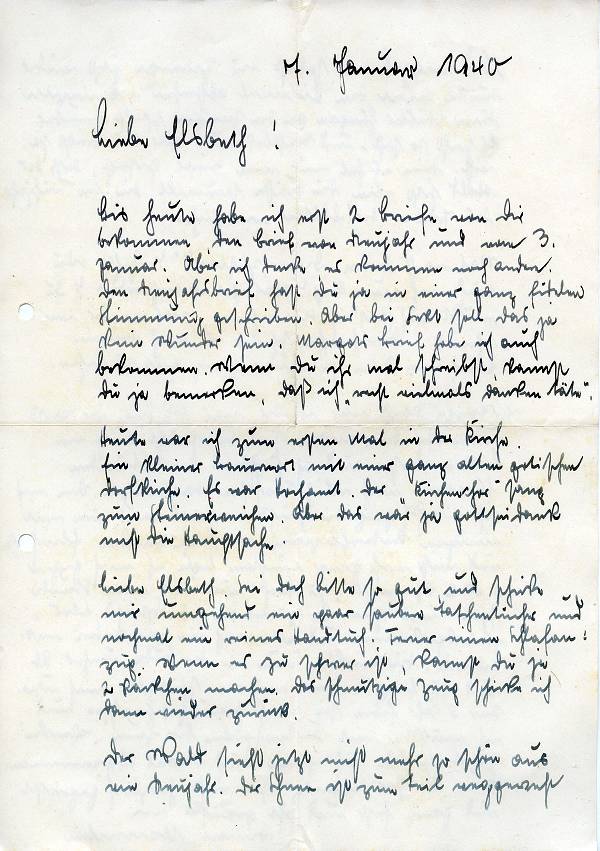 7. Januar 1940
Liebe Elsbeth!
bis heute habe ich erst 2 Briefe von Dir
bekommen, den Brief von Neujahr und vom 3.
Januar. Aber ich denke es kommen noch andere.
Den Neujahrsbrief hast Du ja in einer ganz fidelen
Stimmung geschrieben. Aber bei Sekt soll das ja
kein Wunder sein. Margots Brief habe ich auch
bekommen. Wenn Du ihr mal schreibst, kannst
Du ja bemerken, daß ich "recht vielmals danken täte".
Heute war ich zum ersten Mal in der Kirche.
Ein kleiner Bauernort mit einer ganz alten gotischen
Dorfkirche. Es war Hochamt. Der "Kirchenchor" sang
zum Steinerweichen. Aber das wär ja gottseidank
nicht die Hauptsache.
Liebe Elsbeth. Sei doch bitte so gut und schicke
mir umgehend ein paar saubere Taschentücher und
nochmal ein reines Handtuch. Ferner einen Schlafan-
zug. Wenn es zu schwer ist, kannst Du ja
2 Päckchen machen. Das schmutzige Zeug schicke ich
dann wieder zurück.
Der Wald sieht jetzt nicht mehr so schön aus
wie Neujahr. Der Schnee ist zum Teil weggeweht